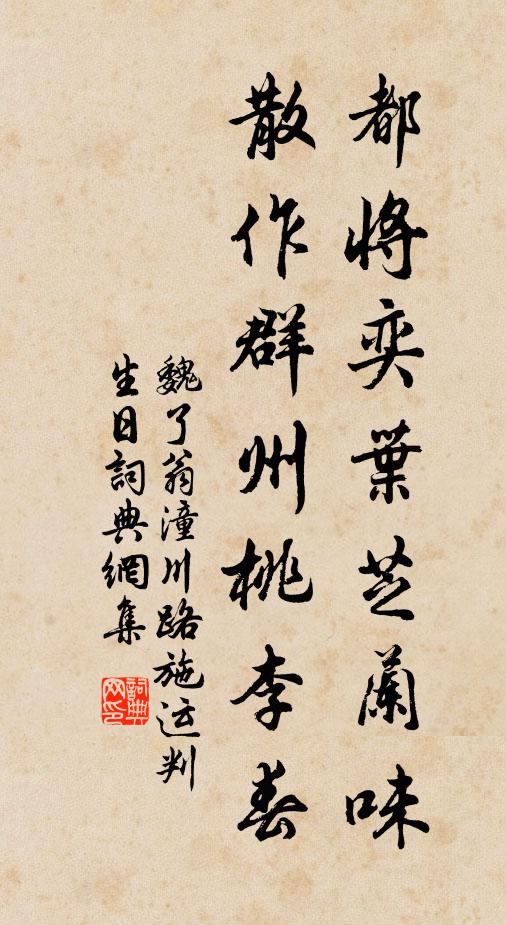 都將奕葉芝蘭味
散作群州桃李春
魏了翁潼川路施运判
生日詞典網集
詞典网印